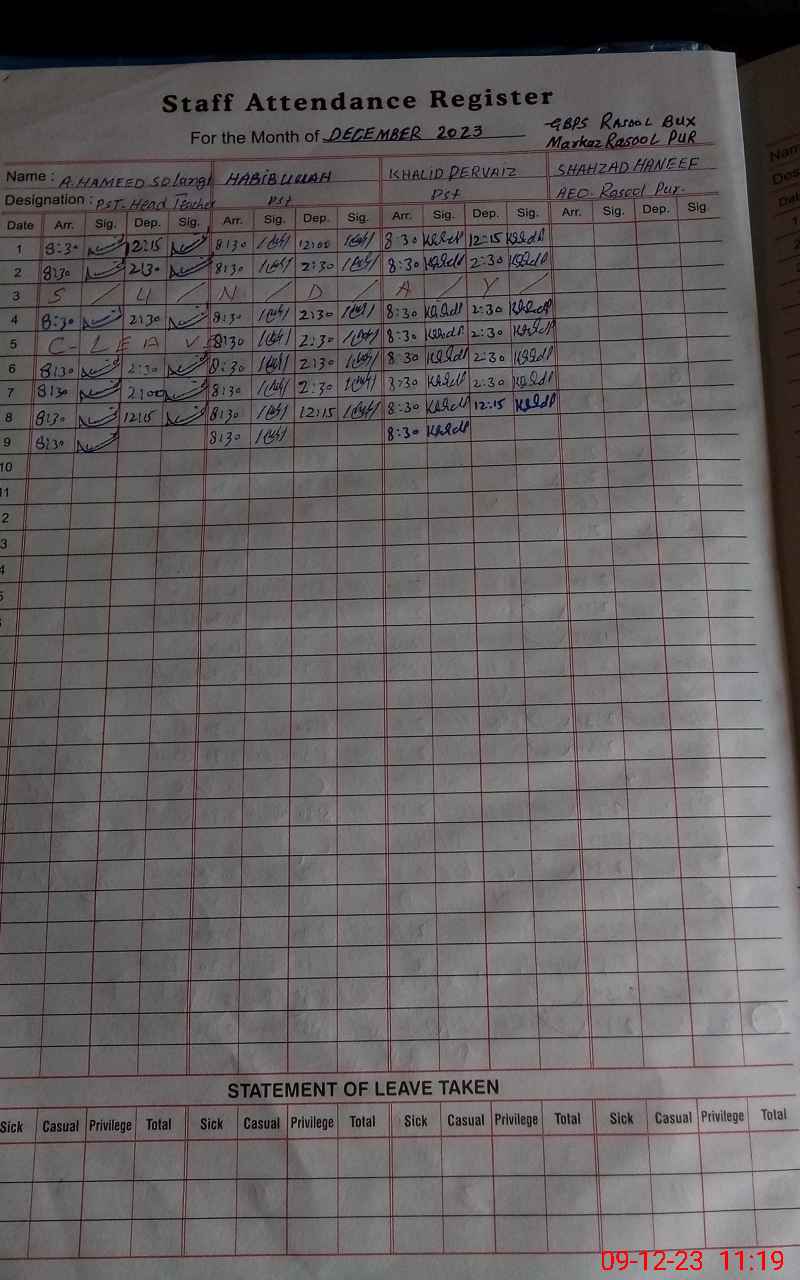 Staff Attendance Register
For the Month of DECEMBER 2023
GBPS RASOOL BUX
Markaz RASOOL PUR
Name : A.HAMEED Solangi HABIBULLAH KHALID PERVAIZ SHAHZAD HANEEF
Designation : PST. Head Teacher Pst Pst AEO. Rasool Pur.
Date Arr. Sig. Dep. Sig. Arr. Sig. Dep. Sig. Arr. Sig. Dep. Sig. Arr. Sig. Dep. Sig.
1 8:30 12:15 8:30 12:00 8:30 Khalid 12:15 Khalid
2 8:30 2:30 8:30 2:30 8:30 Khalid 2:30 Khalid
3 S / U / N / D / A / Y /
4 8:30 2:30 8:30 2:30 8:30 Khalid 2:30 Khalid
5 C- L E A V E 8:30 2:30 8:30 Khalid 2:30 Khalid
6 8:30 2:30 8:30 2:30 8:30 Khalid 2:30 Khalid
7 8:30 2:00 8:30 2:30 8:30 Khalid 2:30 Khalid
8 8:30 12:15 8:30 12:15 8:30 Khalid 12:15 Khalid
9 8:30 8:30 8:30 Khalid
10
11
2
3
4
5
STATEMENT OF LEAVE TAKEN
Sick Casual Privilege Total Sick Casual Privilege Total Sick Casual Privilege Total Sick Casual Privilege Total
09-12-23 11:19